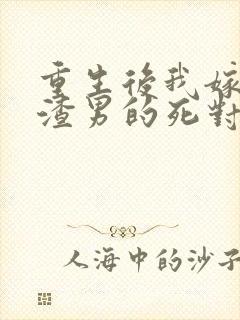 重生後我嫁
渣男的死對
人海中的沙子